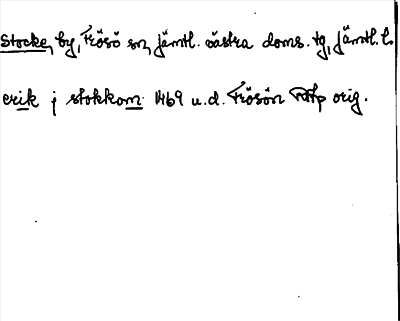 Stocke, by, Frösö sn, jämtl. västra doms. tg, Jämtl. l.
erik j stokkom 1469 u.d. Frösön RAp orig.